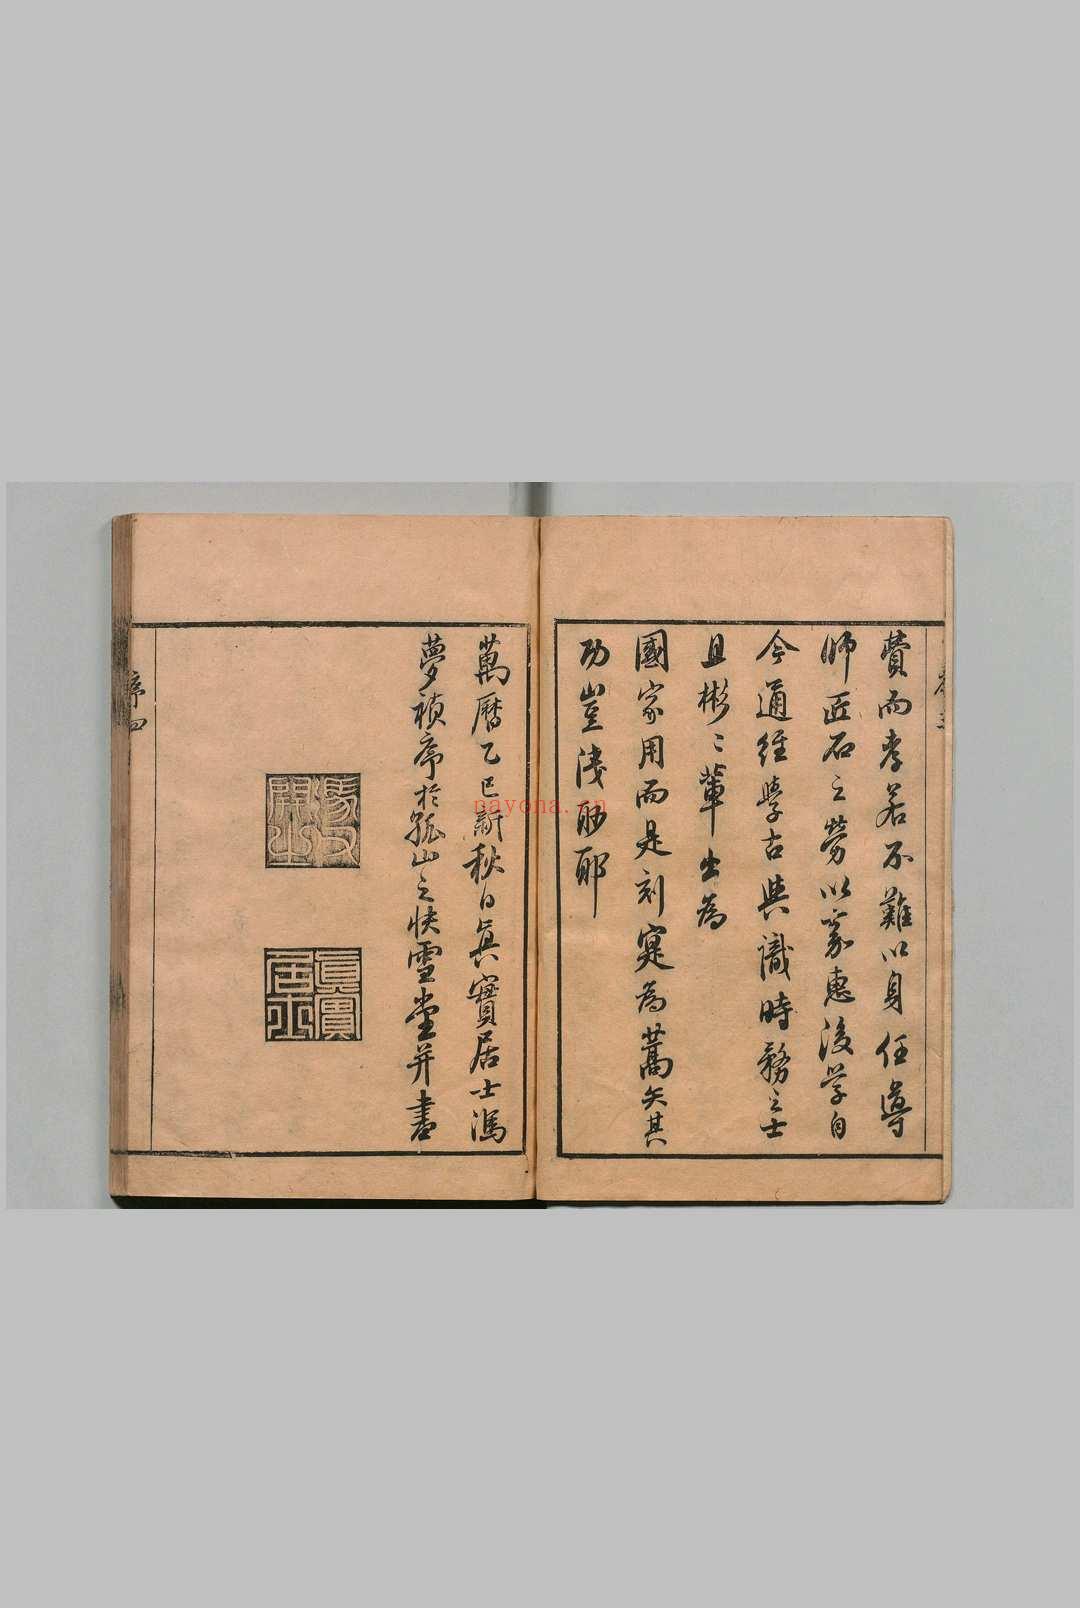 費而孝若不難以身任導
師匠石之勞以嘉惠後學自
今通經學古與識時務之士
且彬〻輩出為
國家用而是刻寔為蒿矢其
功豈淺尠耶
萬曆乙巳新秋日眞實居士馮
夢禎序於孤山之快雪堂并書
馮氏開之
眞實居士
序四
nayona.cn